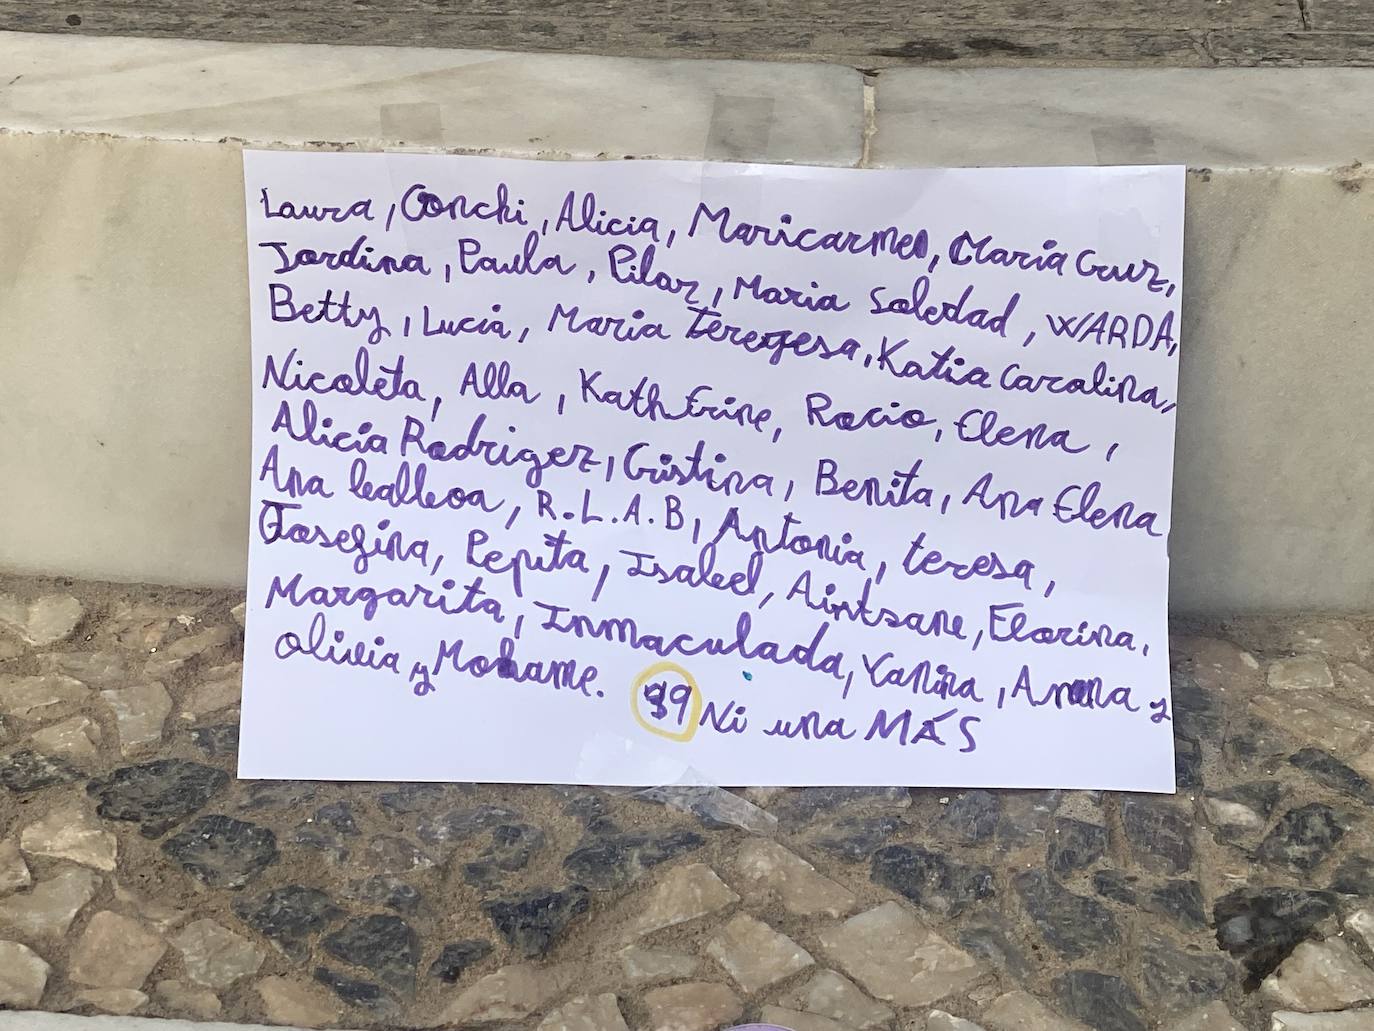 Laura, Conchi, Alicia, Maricarmen, Maria Cruz,
Jordina, Paula, Pilar, Maria Soledad, WARDA,
Betty, Lucia, Maria Teregesa, Katia Carolina,
Nicoleta, Alla, KathErine, Rocio, Elena,
Alicia Rodrigez, Cristina, Benita, Ana Elena
Ana, R.L.A.B, Antonia, teresa,
Josefina, Pepita, Isabel, Aintsane, Elorina,
Margarita, Inmaculada, Yanina, Anna y
olivia y Mohame. 39 Ni una MÁS